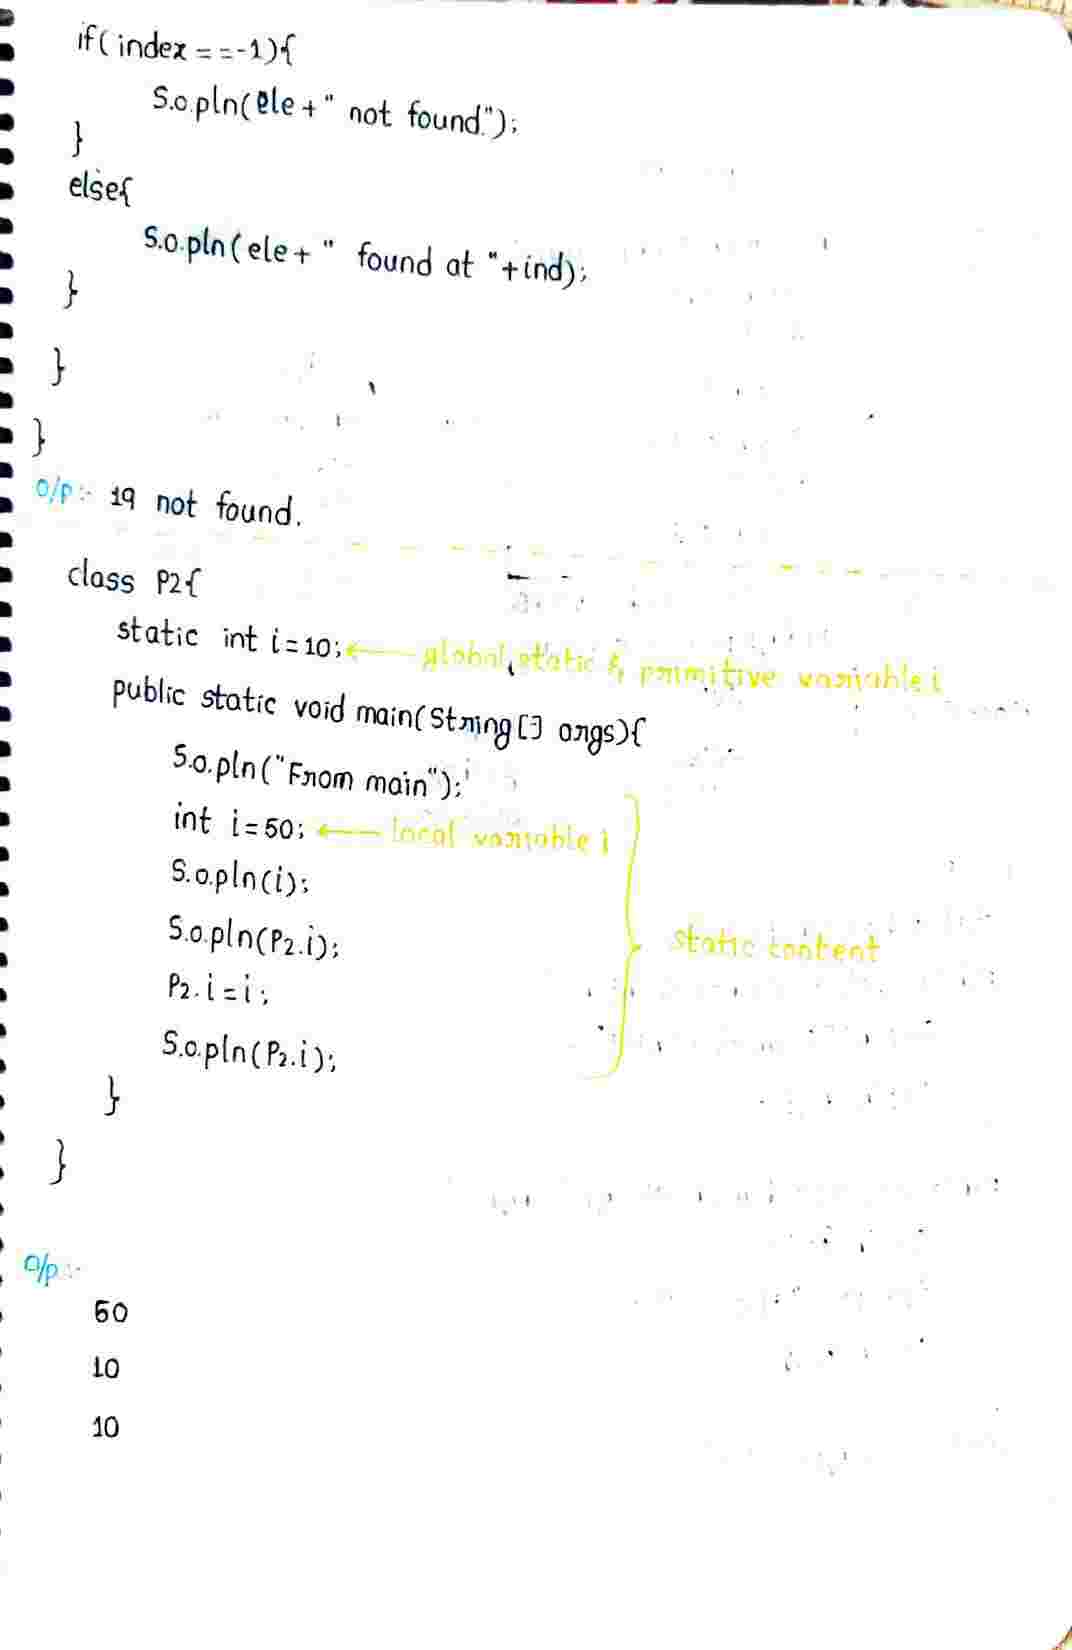 if(index==-1){
S.o.pln(ele+" not found");
}
else{
S.o.pln(ele+" found at "+ind);
}
}
}
O/P:- 19 not found.
class P2{
static int i=10; ← global, static & primitive variable i
public static void main(String[] args){
S.o.pln("From main");
int i=50; ← local variable i
S.o.pln(i);
S.o.pln(P2.i);
static content
P2.i=i;
S.o.pln(P2.i);
}
}
O/p:-
50
10
10